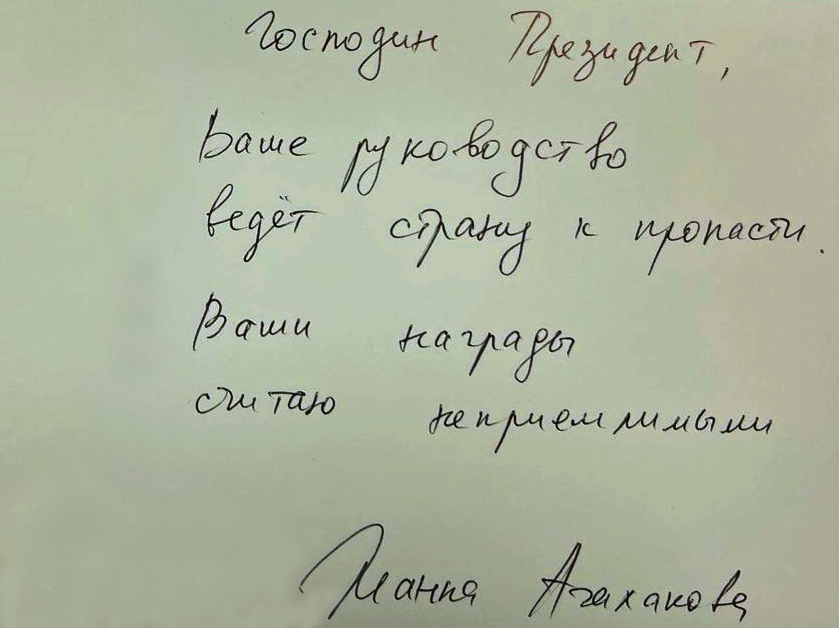 Господин Президент,
Ваше руководство
ведёт страну к пропасти.
Ваши награды
считаю неприемлимыми
Манна Агаханова